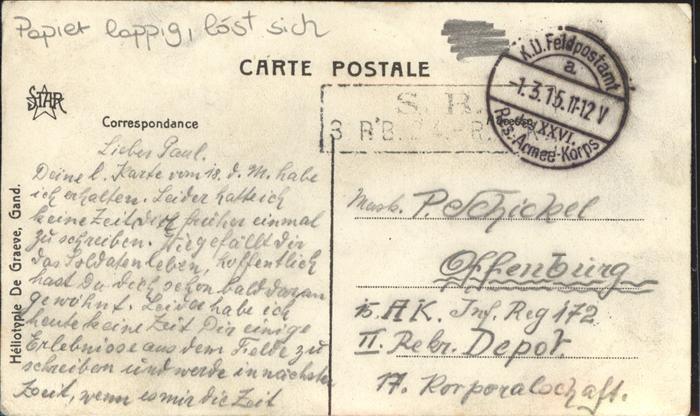 Papier lappig, löst sich
CARTE POSTALE
K.D. Feldpostamt
a.
-1.3.15.11-12V
des XXVI.
Res.-Armee-Korps
S. B.
STAR
Correspondance
Héliotypie De Graeve, Gand.
Lieber Paul.
Deine l. Karte vom 18. d. M. habe
ich erhalten. Leider hatte ich
keine Zeit dich früher einmal
zu schreiben. Wie gefällt dir
das Soldatenleben, hoffentlich
hast Du dich schon bald daran
gewöhnt. Leider habe ich
heute keine Zeit Dir einige
Erlebnisse aus dem Felde zu
schreiben und werde in nächster
Zeit, wenn es mir die Zeit
Musk. P. Schickel
Offenburg
15. AK. Inf. Reg 172
II. Rekr. Depot
17. Korporalschaft.